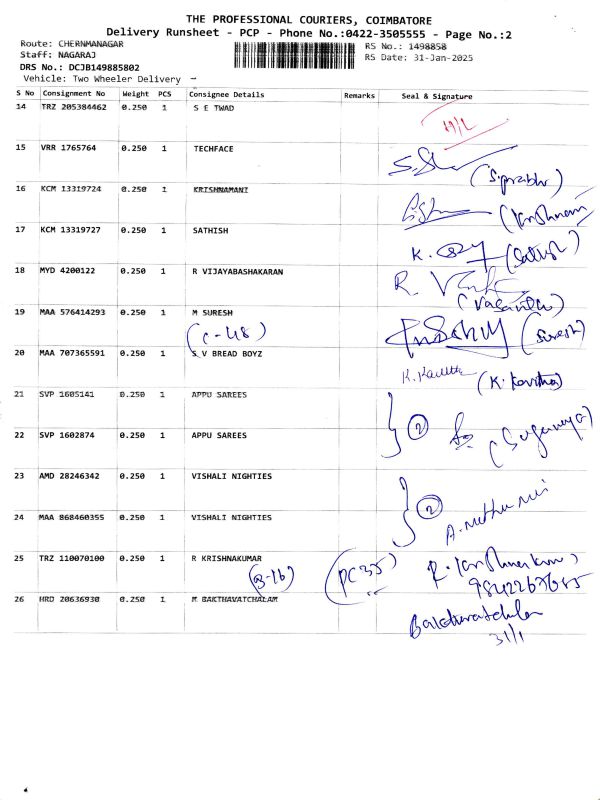 THE PROFESSIONAL COURIERS, COIMBATORE
Delivery Runsheet - PCP - Phone No.:0422-3505555 - Page No.:2
Route: CHERNMANAGAR
RS No.: 1498858
Staff: NAGARAJ
RS Date: 31-Jan-2025
DRS No.: DCJB149885802
Vehicle: Two Wheeler Delivery
S No Consignment No Weight PCS Consignee Details Remarks Seal & Signature
14 TRZ 205384462 0.250 1 S E TWAD
15 VRR 1765764 0.250 1 TECHFACE
(S.prabhu)
16 KCM 13319724 0.250 1 KRISHNAMANI
17 KCM 13319727 0.250 1 SATHISH
K.
18 MYD 4200122 0.250 1 R VIJAYABASHAKARAN
R.
(Vasantha)
19 MAA 576414293 0.250 1 M SURESH
(C-48)
(Suresh)
20 MAA 707365591 0.250 1 S V BREAD BOYZ
K. Kavitha (K. Kavitha)
21 SVP 1605141 0.250 1 APPU SAREES
2
22 SVP 1602874 0.250 1 APPU SAREES
23 AMD 28246342 0.250 1 VISHALI NIGHTIES
2
24 MAA 868460355 0.250 1 VISHALI NIGHTIES
25 TRZ 110070100 0.250 1 R KRISHNAKUMAR
(B-16) (PC35)
26 HRD 20636930 0.250 1 M BAKTHAVATCHALAM
31/1